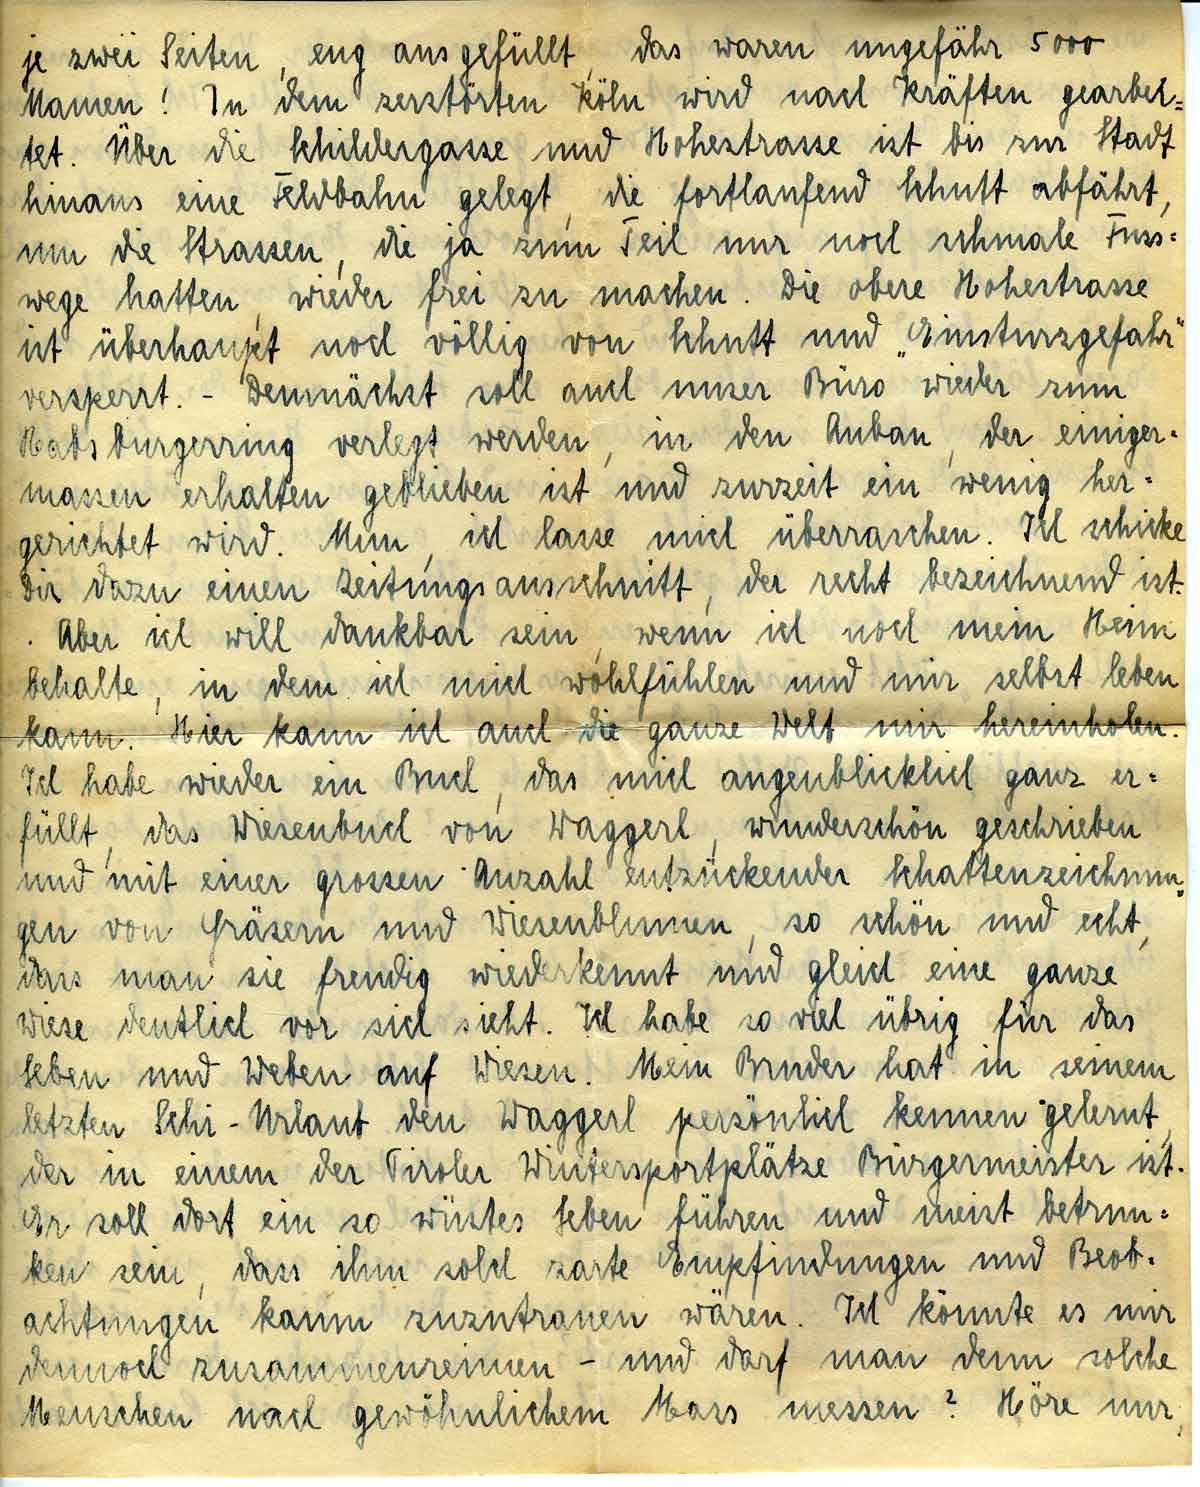 je zwei Seiten, eng ausgefüllt, das waren ungefähr 5000
Namen! In dem zerstörten Köln wird nach Kräften gearbei=
tet. Über die Schildergasse und Hohestrasse ist bis zur Stadt
hinaus eine Feldbahn gelegt, die fortlaufend Schutt abfährt,
um die Strassen, die ja zum Teil nur noch schmale Fuss=
wege hatten, wieder frei zu machen. Die obere Hohestrasse
ist überhaupt noch völlig von Schutt und „Einsturzgefahr"
versperrt. - Demnächst soll auch unser Büro wieder zum
Habsburgerring verlegt werden, in den Anbau, der einiger=
massen erhalten geblieben ist und zurzeit ein wenig her=
gerichtet wird. Nun, ich lasse mich überraschen. Ich schicke
Dir dazu einen Zeitungsausschnitt, der recht bezeichnend ist.
. Aber ich will dankbar sein, wenn ich noch mein Heim
behalte, in dem ich mich wohlfühlen und mir selbst leben
kann. Hier kann ich auch die ganze Welt mir hereinholen.
Ich habe wieder ein Buch, das mich augenblicklich ganz er=
füllt, das Wiesenbuch von Waggerl, wunderschön geschrieben
und mit einer grossen Anzahl entzückender Schattenzeichnun=
gen von Gräsern und Wiesenblumen, so schön und echt,
dass man sie freudig wiederkennt und gleich eine ganze
Wiese deutlich vor sich sieht. Ich habe so viel übrig für das
Leben und Weben auf Wiesen. Mein Bruder hat in seinem
letzten Schi-Urlaub den Waggerl persönlich kennen gelernt,
der in einem der Tiroler Wintersportplätze Bürgermeister ist.
Er soll dort ein so wüstes Leben führen und meist betrun=
ken sein, dass ihm solch zarte Empfindungen und Beob=
achtungen kaum zuzutrauen wären. Ich könnte es mir
dennoch zusammenreimen - und darf man denn solche
Menschen nach gewöhnlichem Mass messen? Höre nur,